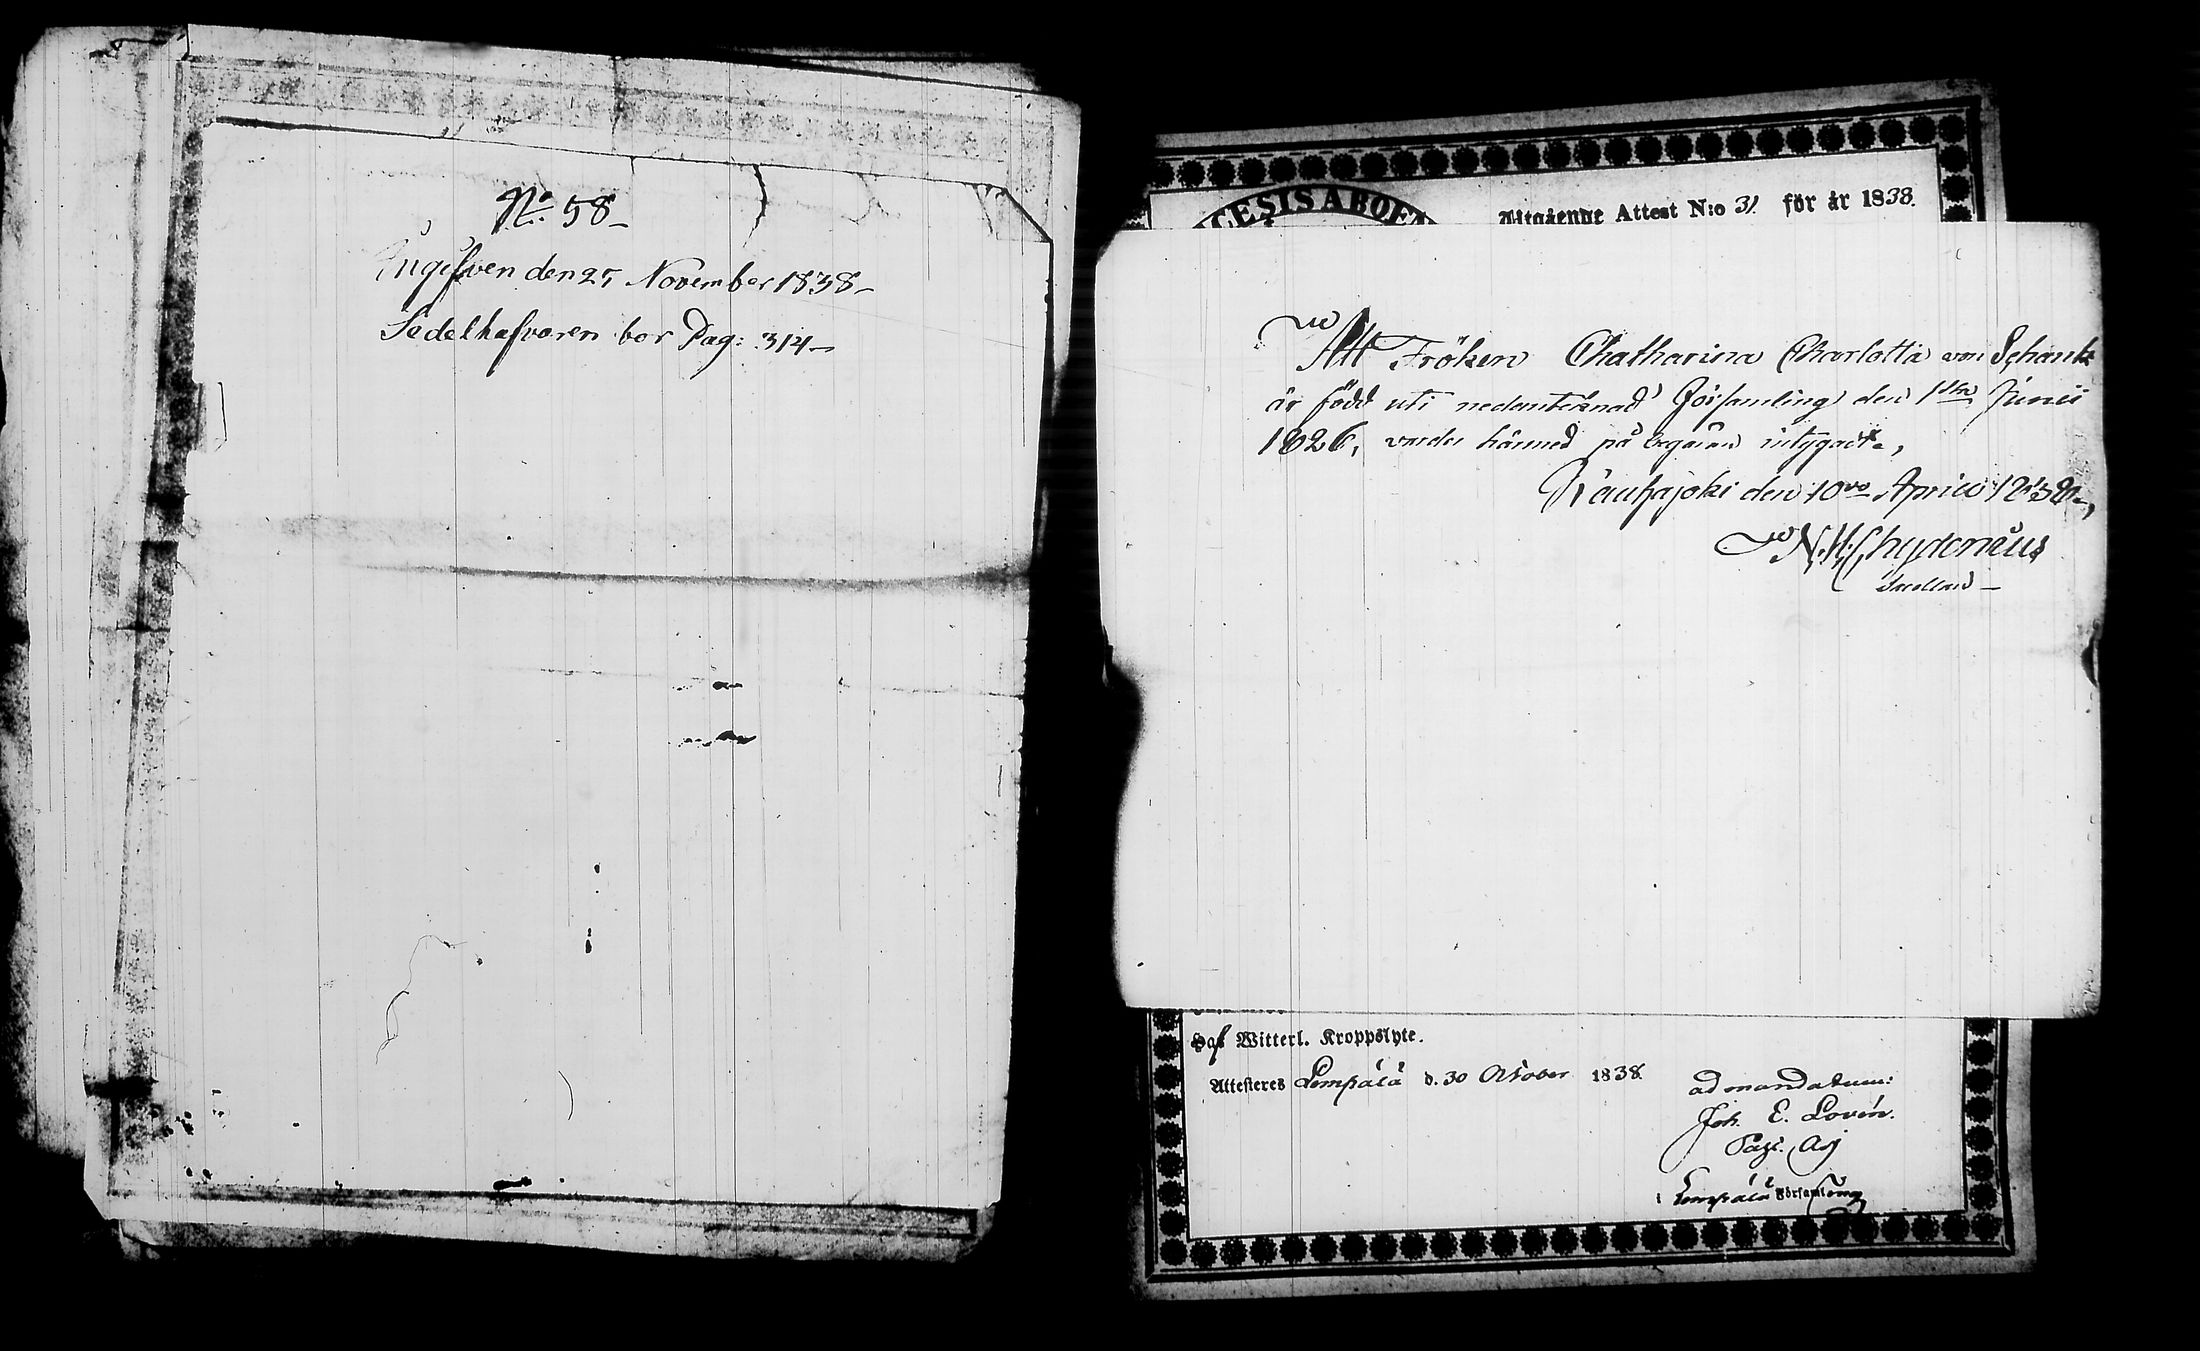 No 58
Ingifven den 27 November 1838
Sedelhafvaren bor Pag: 314
CESIS ABOEN
Utgående Attest N:o 31 för år 1838.
Att Fröken Chatharina Charlotta von Schantz
är född uti nedantecknad Församling den 1sta Junii
1826, varder härmed på begäran intygadt,
Kauhajoki den 10de April 1838,
N. H. Chydenius
Haf Witterl. Kroppslyte.
Attesteres Lempälä d. 30 October 1838.
ad mandatum:
Joh. E. Lovén.
Past. Adj
i Lempälä Församling